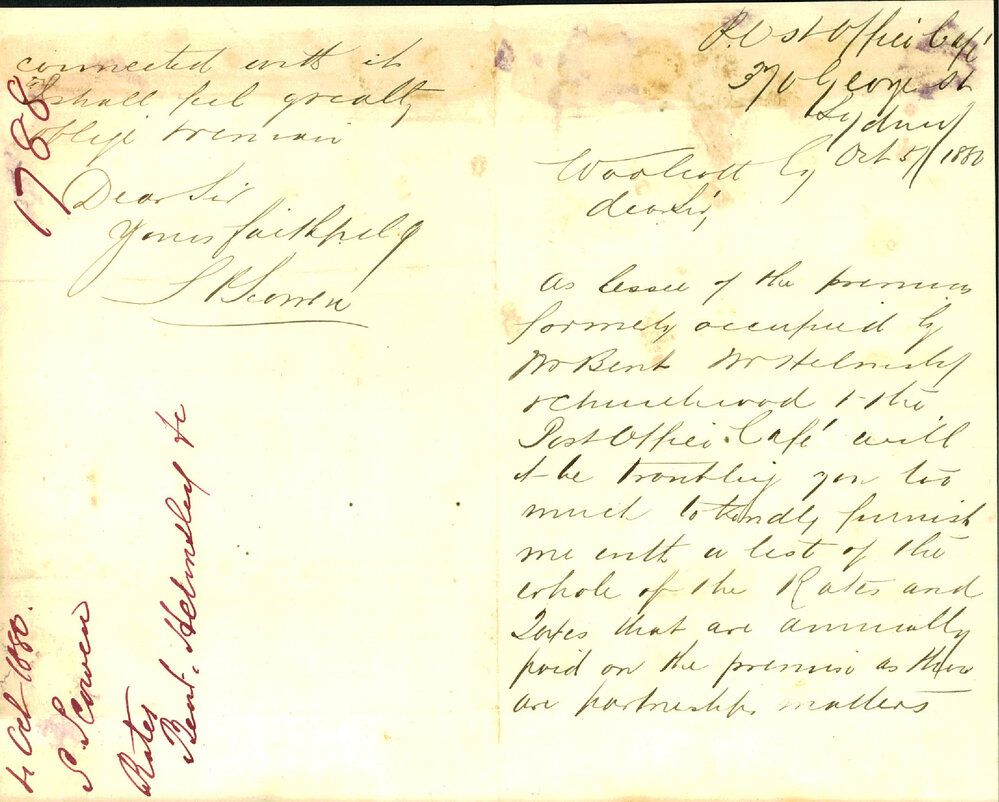 Post Office Café
370 George St
Sydney
Oct 5/1880
Woolcott Esq
dear Sir,
As lessee of the premises
formely occupied by
Mr Bent Mr Helmsley
& Churchwood & the
Post Office Café will
it be troubling you too
much to kindly furnish
me with a list of the
whole of the Rates and
Taxes that are annually
paid on the premise as there
are partnership matters
connected with it
I shall feel greatly
oblige & remain
Dear Sir
Yours faithfully
S Scowen
1788
Oct 1880.
S. Scowen
Rates
Bent. Helmsley &c